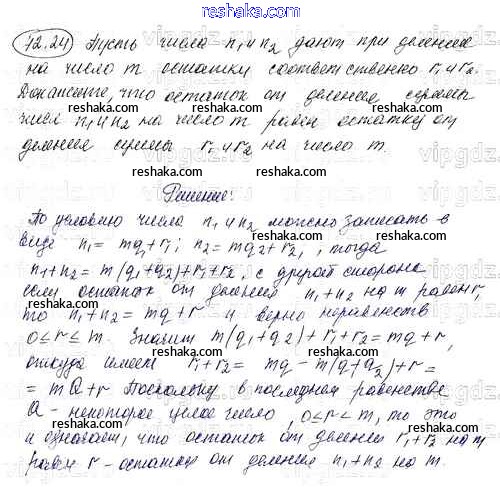 reshaka.com
42.24 Пусть числа n₁ и n₂ дают при делении
на число m остатки соответственно r₁ и r₂.
Докажите, что остаток от деления суммы
чисел n₁ и n₂ на число m равен остатку от
деления суммы r₁ и r₂ на число m.
Решение:
По условию числа n₁ и n₂ можно записать в
виде n₁ = mq₁ + r₁; n₂ = mq₂ + r₂, тогда
n₁ + n₂ = m(q₁ + q₂) + r₁ + r₂, с другой стороны
если остаток от деления n₁ + n₂ на m равен r,
то n₁ + n₂ = mq + r и верно неравенств
0 ≤ r ≤ m. Значит m(q₁ + q₂) + r₁ + r₂ = mq + r,
откуда имеем r₁ + r₂ = mq - m(q₁ + q₂) + r =
= mQ + r Поскольку в последнем равенстве
Q - некоторое целое число, 0 ≤ r < m, то это
и означает, что остаток от деления r₁ + r₂ на m
равен r - остаток от деления n₁ + n₂ на m.
reshaka.com